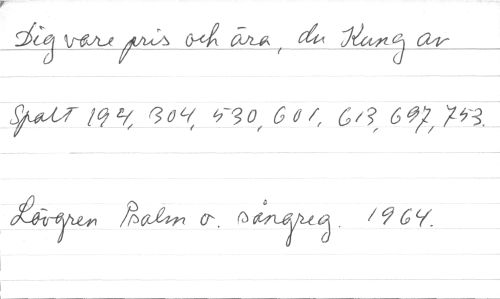 Dig vare pris och ära, du Kung av
Spalt 194, 304, 530, 601, 613, 697, 753.
Lövgren Psalm o. sångreg. 1964.